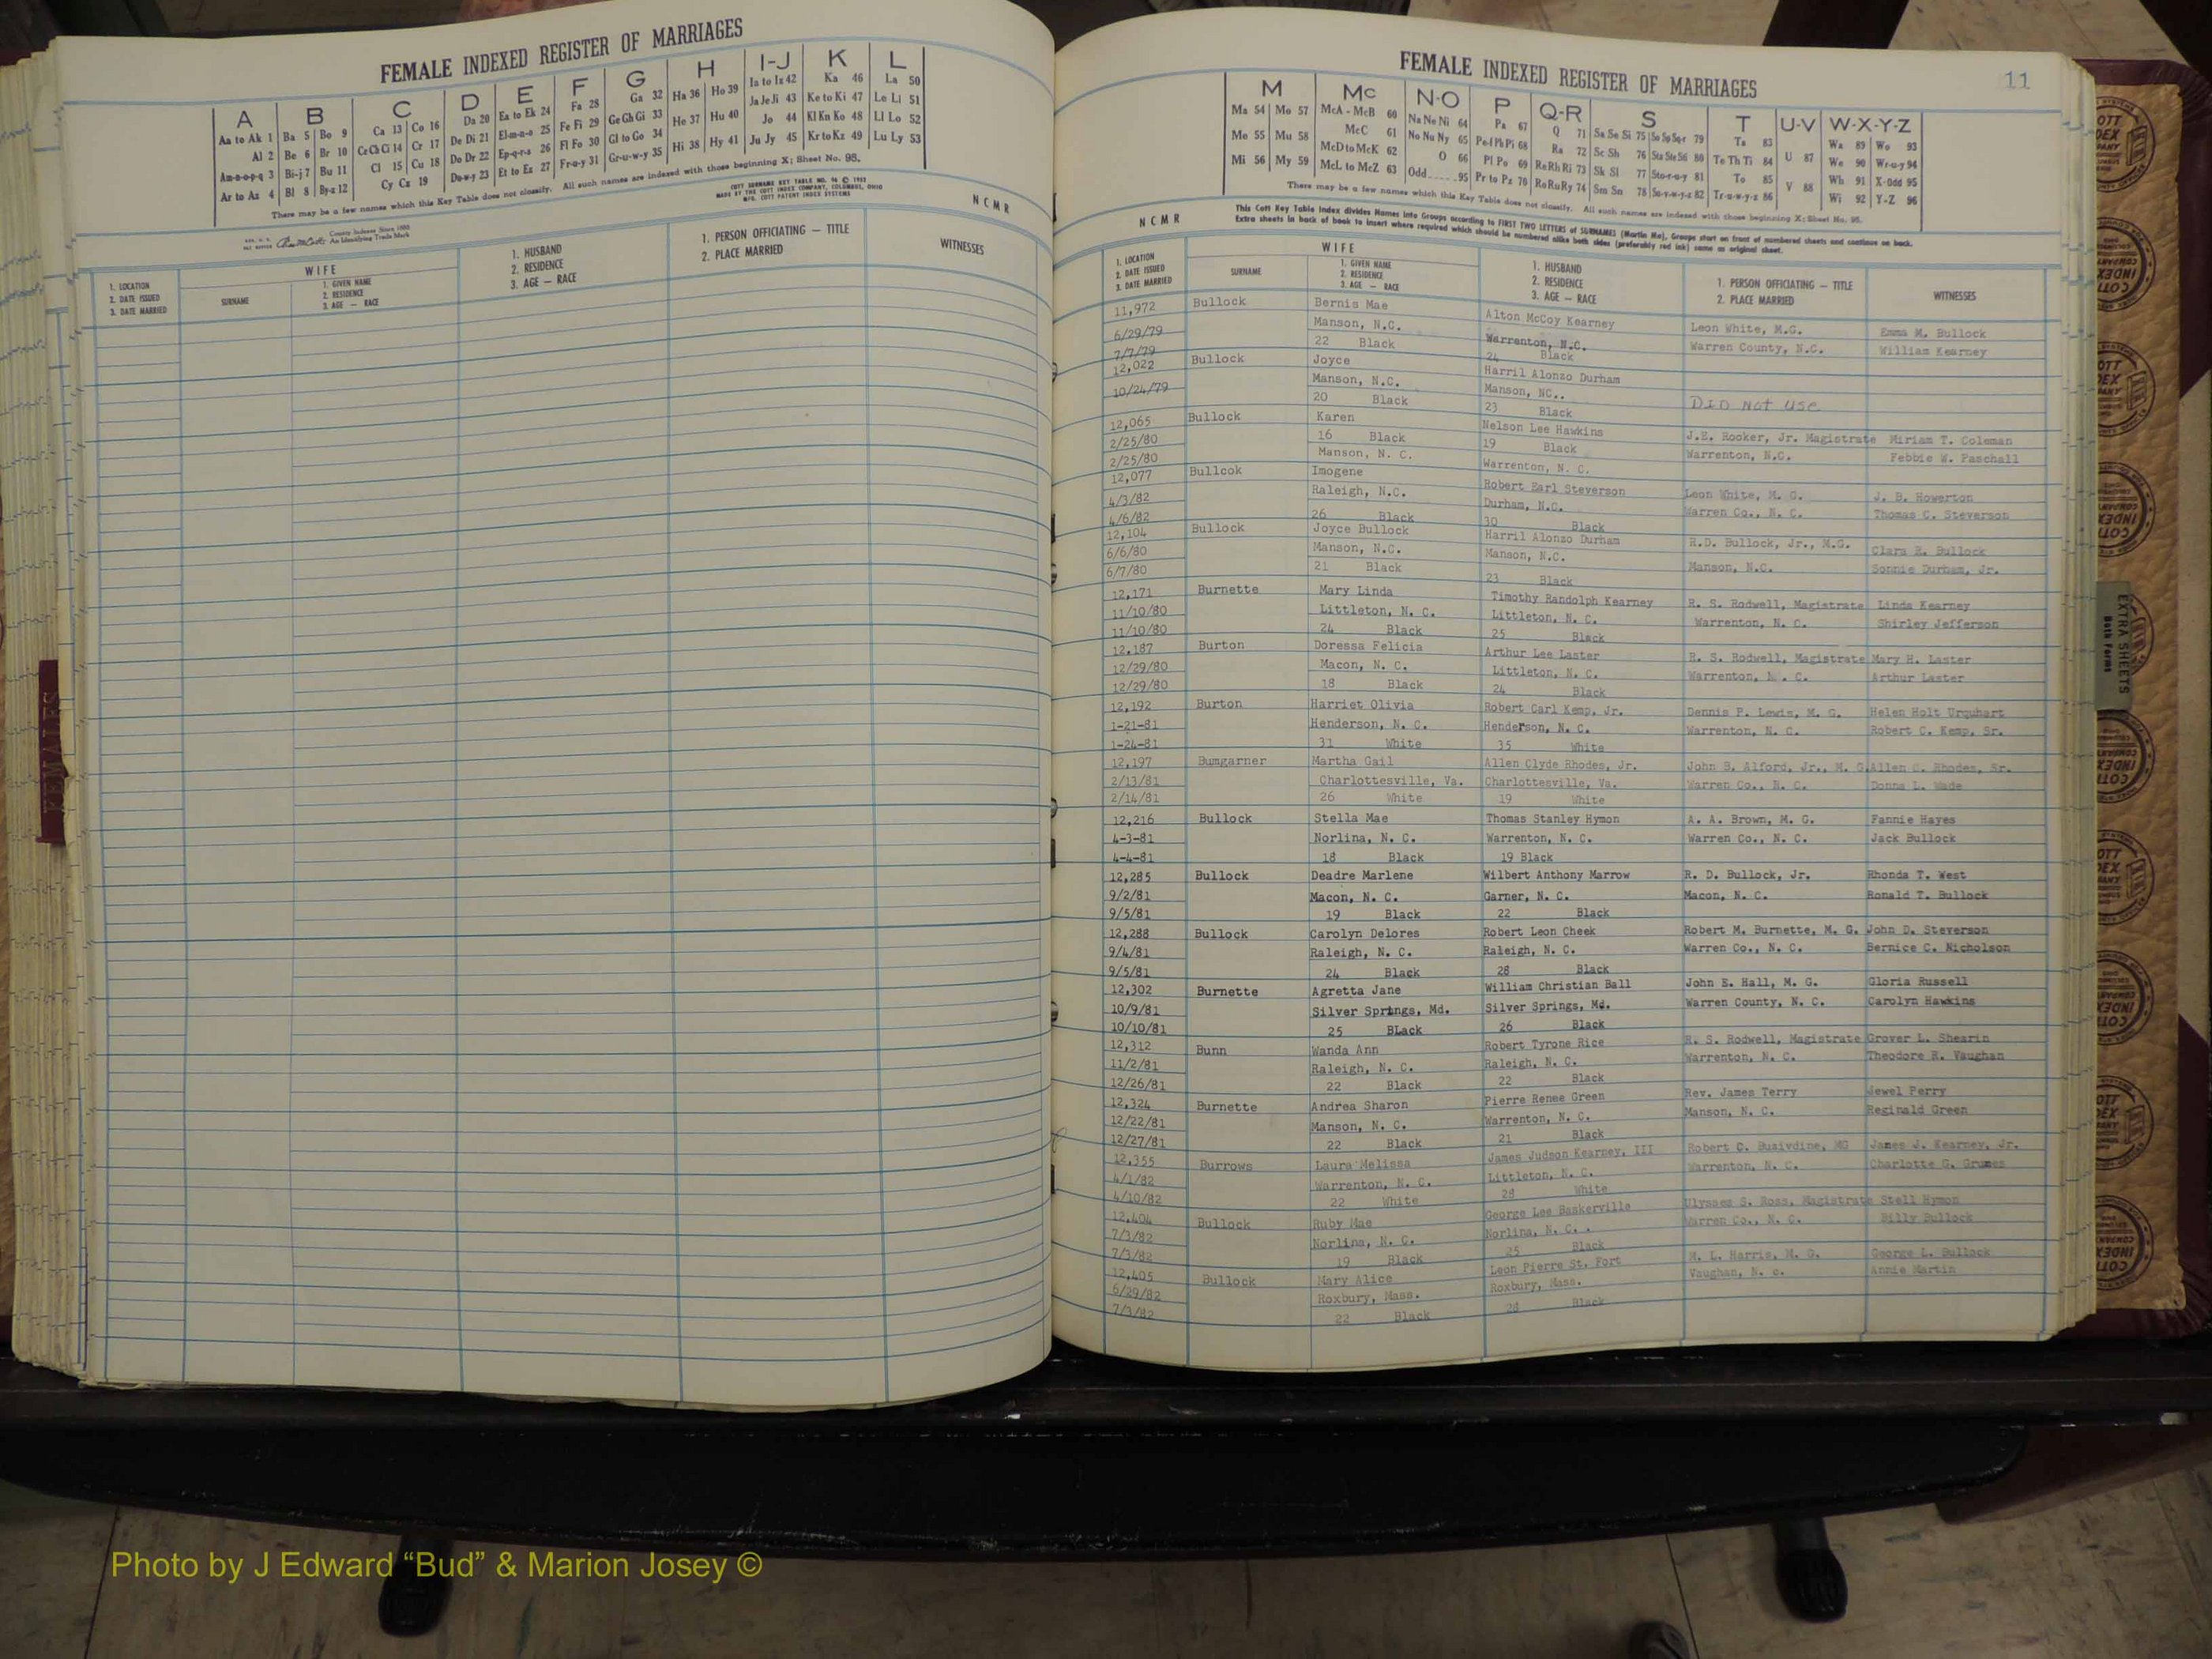 FEMALE INDEXED REGISTER OF MARRIAGES
A B C D E F G H I-J K L
Aa to Ak 1 Ba 5 Bo 9 Ca 13 Co 16 Da 20 Ea to Ek 24 Fa 28 Ga 32 Ha 36 Ho 39 Ia to Iz 42 Ka 46 La 50
Al 2 Be 6 Br 10 Ce Ch Ci 14 Cr 17 De Di 21 El-m-n-o 25 Fe Fi 29 Ge Gh Gi 33 He 37 Hu 40 Ja Je Ji 43 Ke to Ki 47 Le Li 51
Am-n-o-p-q 3 Bi-j 7 Bu 11 Cl 15 Cu 18 Do Dr 22 Ep-q-r-s 26 Fl Fo 30 Gl to Go 34 Hi 38 Hy 41 Jo 44 Kl Kn Ko 48 Ll Lo 52
Ar to Az 4 Bl 8 By-z 12 Cy Cz 19 Du-w-y 23 Et to Ez 27 Fr-u-y 31 Gr-u-w-y 35 Ju Jy 45 Kr to Kz 49 Lu Ly 53
There may be a few names which this Key Table does not classify. All such names are indexed with those beginning X; Sheet No. 98.
COTT SURNAME KEY TABLE NO. 96 ©
MADE BY THE COTT INDEX COMPANY, COLUMBUS, OHIO
MFG. COTT PATENT INDEX SYSTEMS
N C M R
County Indexes Since 1888
An Identifying Trade Mark
1. LOCATION
2. DATE ISSUED
3. DATE MARRIED
WIFE
SURNAME
1. GIVEN NAME
2. RESIDENCE
3. AGE — RACE
1. HUSBAND
2. RESIDENCE
3. AGE — RACE
1. PERSON OFFICIATING — TITLE
2. PLACE MARRIED
WITNESSES
FEMALES
FEMALE INDEXED REGISTER OF MARRIAGES
11
M Mc N-O P Q-R S T U-V W-X-Y-Z
Ma 54 Mo 57 McA - McB 60 Na Ne Ni 64 Pa 67 Q 71 Sa Se Si 75 So Sp Sq-r 79 Ta 83 U 87 Wa 89 Wo 93
Me 55 Mu 58 McC 61 No Nu Ny 65 Pe-f Ph Pi 68 Ra 72 Sc Sh 76 Sta Ste Sti 80 Te Th Ti 84 V 88 We 90 Wr-u-y 94
Mi 56 My 59 McD to McK 62 O 66 Pl Po 69 Re Rh Ri 73 Sk Sl 77 Sto-r-u-y 81 To 85 Wh 91 X-Odd 95
McL to McZ 63 Odd 95 Pr to Pz 70 Ro Ru Ry 74 Sm Sn 78 Su-v-w-y-z 82 Tr-u-w-y-z 86 Wi 92 Y-Z 96
There may be a few names which this Key Table does not classify. All such names are indexed with those beginning X; Sheet No. 98.
This Cott Key Table Index divides Names into Groups according to FIRST TWO LETTERS of SURNAMES (Martin Ma), Groups start on front of numbered sheets and continue on back.
Extra sheets in back of book to insert where required which should be numbered alike both sides (preferably red ink) same as original sheet.
N C M R
1. LOCATION
2. DATE ISSUED
3. DATE MARRIED
WIFE
SURNAME
1. GIVEN NAME
2. RESIDENCE
3. AGE — RACE
1. HUSBAND
2. RESIDENCE
3. AGE — RACE
1. PERSON OFFICIATING — TITLE
2. PLACE MARRIED
WITNESSES
11,972 Bullock Bernis Mae Alton McCoy Kearney Leon White, M.G. Emma M. Bullock
6/29/79 Manson, N.C. Warrenton, N.C. Warren County, N.C. William Kearney
7/7/79 22 Black 24 Black
12,022 Bullock Joyce Harril Alonzo Durham
10/24/79 Manson, N.C. Manson, NC..
20 Black 23 Black DID NOT USE
12,065 Bullock Karen Nelson Lee Hawkins J.E. Rooker, Jr. Magistrate Miriam T. Coleman
2/25/80 16 Black 19 Black Warrenton, N.C. Febbie W. Paschall
2/25/80 Manson, N. C. Warrenton, N. C.
12,077 Bullcok Imogene Robert Earl Steverson Leon White, M. G. J. B. Howerton
4/3/82 Raleigh, N.C. Durham, N.C. Warren Co., N. C. Thomas C. Steverson
4/6/82 26 Black 30 Black
12,104 Bullock Joyce Bullock Harril Alonzo Durham R.D. Bullock, Jr., M.G. Clara E. Bullock
6/6/80 Manson, N.C. Manson, N.C. Manson, N.C. Sonnie Durham, Jr.
6/7/80 21 Black 23 Black
12,171 Burnette Mary Linda Timothy Randolph Kearney R. S. Rodwell, Magistrate Linda Kearney
11/10/80 Littleton, N. C. Littleton, N. C. Warrenton, N. C. Shirley Jefferson
11/10/80 24 Black 25 Black
12,187 Burton Doressa Felicia Arthur Lee Laster R. S. Rodwell, Magistrate Mary H. Laster
12/29/80 Macon, N. C. Littleton, N. C. Warrenton, N. C. Arthur Laster
12/29/80 18 Black 24 Black
12,192 Burton Harriet Olivia Robert Carl Kemp, Jr. Dennis P. Lewis, M. G. Helen Holt Urquhart
1-21-81 Henderson, N. C. Henderson, N. C. Warrenton, N. C. Robert C. Kemp, Sr.
1-24-81 31 White 35 White
12,197 Bumgarner Martha Gail Allen Clyde Rhodes, Jr. John S. Alford, Jr., M. G. Allen C. Rhodes, Sr.
2/13/81 Charlottesville, Va. Charlottesville, Va. Warren Co., N. C. Donna L. Wade
2/14/81 26 White 19 White
12,216 Bullock Stella Mae Thomas Stanley Hymon A. A. Brown, M. G. Fannie Hayes
4-3-81 Norlina, N. C. Warrenton, N. C. Warren Co., N. C. Jack Bullock
4-4-81 18 Black 19 Black
12,285 Bullock Deadre Marlene Wilbert Anthony Marrow R. D. Bullock, Jr. Rhonda T. West
9/2/81 Macon, N. C. Garner, N. C. Macon, N. C. Ronald T. Bullock
9/5/81 19 Black 22 Black
12,288 Bullock Carolyn Delores Robert Leon Cheek Robert M. Burnette, M. G. John D. Steverson
9/4/81 Raleigh, N. C. Raleigh, N. C. Warren Co., N. C. Bernice C. Nicholson
9/5/81 24 Black 28 Black
12,302 Burnette Agretta Jane William Christian Ball John E. Hall, M. G. Gloria Russell
10/9/81 Silver Springs, Md. Silver Springs, Md. Warren County, N. C. Carolyn Hawkins
10/10/81 25 BLack 26 Black
12,312 Bunn Wanda Ann Robert Tyrone Rice R. S. Rodwell, Magistrate Grover L. Shearin
11/2/81 Raleigh, N. C. Raleigh, N. C. Warrenton, N. C. Theodore R. Vaughan
12/26/81 22 Black 22 Black
12,324 Burnette Andrea Sharon Pierre Renee Green Rev. James Terry Jewel Perry
12/22/81 Manson, N. C. Warrenton, N. C. Manson, N. C. Reginald Green
12/27/81 22 Black 21 Black
12,355 Burrows Laura Melissa James Judson Kearney, III Robert C. MG James J. Kearney, Jr.
4/1/82 Warrenton, N. C. Littleton, N. C. Warrenton, N. C. Charlotte G.
4/10/82 22 White 28 White
12,404 Bullock Ruby Mae George Lee Baskerville Ulysses S. Ross, Magistrate Stell Hymon
7/3/82 Norlina, N. C. Norlina, N. C. . Warren Co., N. C. Billy Bullock
7/3/82 19 Black 25 Black
12,405 Bullock Mary Alice Leon Pierre St. Fort M. L. Harris, M. G. George L. Bullock
6/29/82 Roxbury, Mass. Roxbury, Mass. Vaughan, N. c. Annie Martin
7/3/82 22 Black 28 Black
EXTRA SHEETS
Both Forms
Photo by J Edward “Bud” & Marion Josey ©